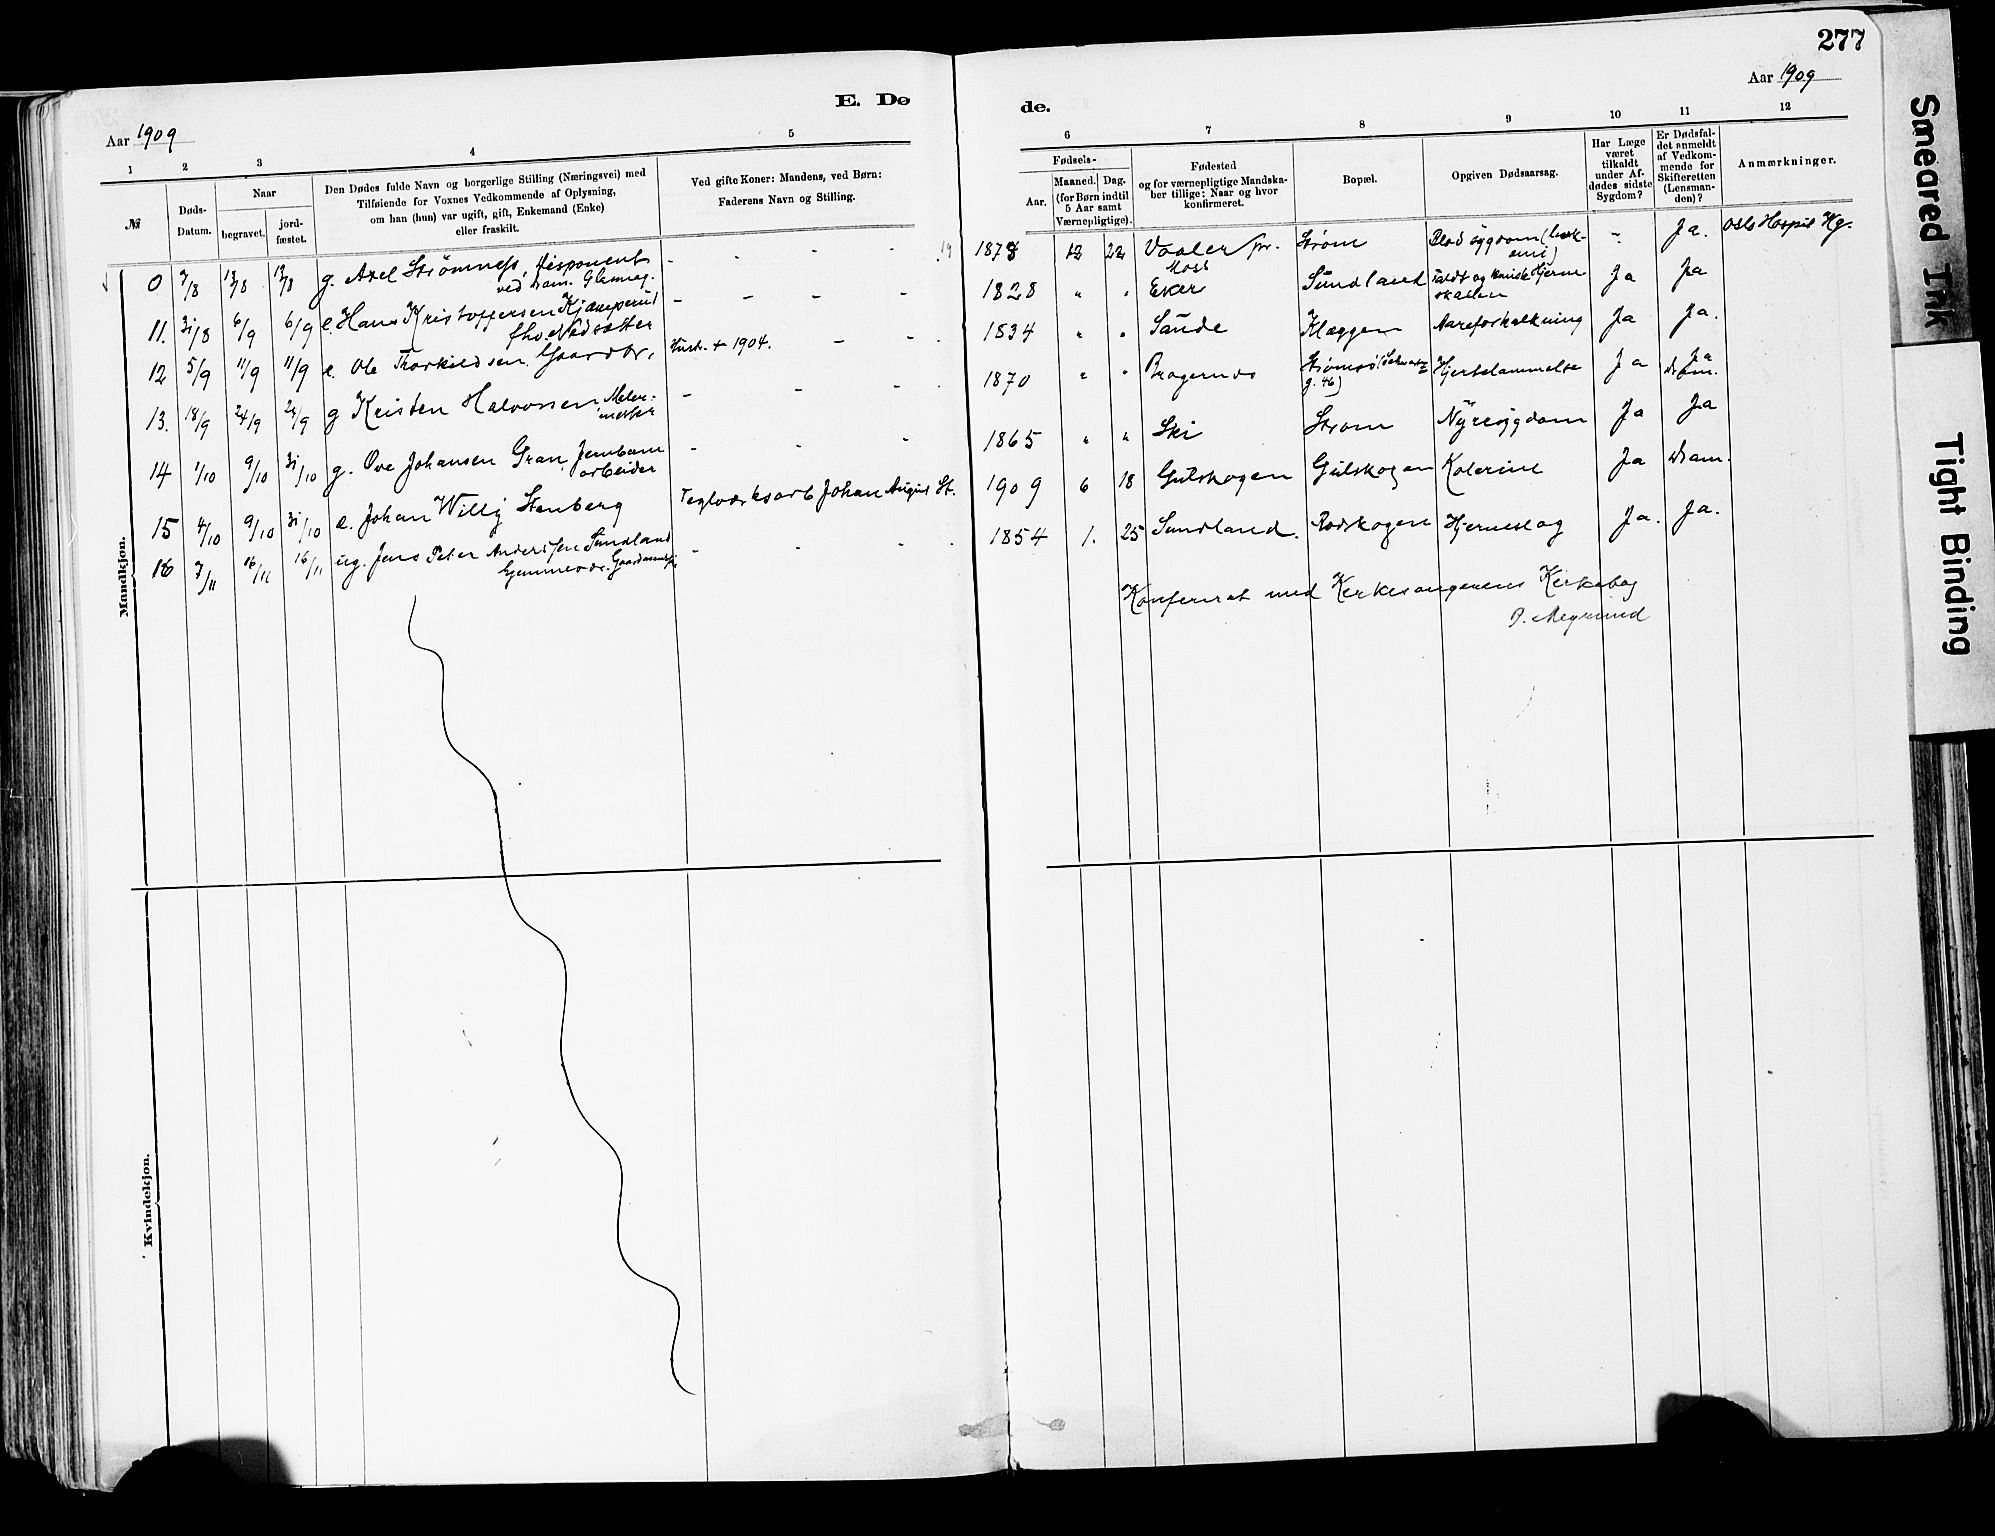 277
Aar 1909
E. Dø
de.
Aar 1909
1 2 3 4 5
6 7 8 9 10 11 12
№
Døds-
Datum.
Naar
begravet.
jord-
fæstet.
Den Dødes fulde Navn og borgerlige Stilling (Næringsvei) med
Tilføiende for Voxnes Vedkommende af Oplysning,
om han (hun) var ugift, gift, Enkemand (Enke)
eller fraskilt.
Ved gifte Koner: Mandens, ved Børn:
Faderens Navn og Stilling.
Fødsels-
Aar.
Maaned. Dag.
(for Børn indtil
5 Aar samt
Værnepligtige).
Fødested
og for værnepligtige Mandska-
ber tillige: Naar og hvor
konfirmeret.
Bopæl.
Opgiven Dødsaarsag.
Har Læge
været
tilkaldt
under Af-
dødes sidste
Sygdom?
Er Dødsfal-
det anmeldt
af Vedkom-
mende for
Skifteretten
(Lensman-
den)?
Anmærkninger.
Mandkjøn.
0 7/8 13/8 13/8 g. Axel Strømness, Disponent
ved Dram. Glasmag.
- - - -
1873 12 22 Vaaler pr. Moss Strøm Blodsygdom - Ja. Oslo Hospit Kg.
11. 31/8 6/9 6/9 e. Hans Kristoffersen Kjæmperud
- - - -
1828 " " Eker Sundland Faldt og Hjerne
skallen Ja Ja
12 5/9 11/9 11/9 e. Ole Thorkildsen Gaardbr.
Hustr. + 1904. - -
1834 " " Sande Kleggen Aareforkalkning Ja Ja.
13. 18/9 24/9 24/9 g Kristen Halvorsen Maler-
mester
- - -
1870 " " Bragernes Strømsø
g. 46) Hjertelammelse Ja Ja
Dram.
14 1/10 9/10 31/10 g. Ove Johansen Gran, Jernbane
arbeider
- - -
1865 " " Ski Strøm Nyresygdom Ja Ja
15 4/10 9/10 31/10 e. Johan Willy Stenberg
Teglværksarb Johan August St.
1909 6 18 Gulskogen Gulskogen Kolerine Ja Dram.
16 7/11 16/11 16/11 ug. Jens Peter Anderssen Sundland
- - -
1854 1. 25 Sundland. Rødskogen Hjerneslag Ja. Ja.
Konfereret med Kirkesangerens Kirkebog
Kvindekjøn.
Smeared Ink
Tight Binding